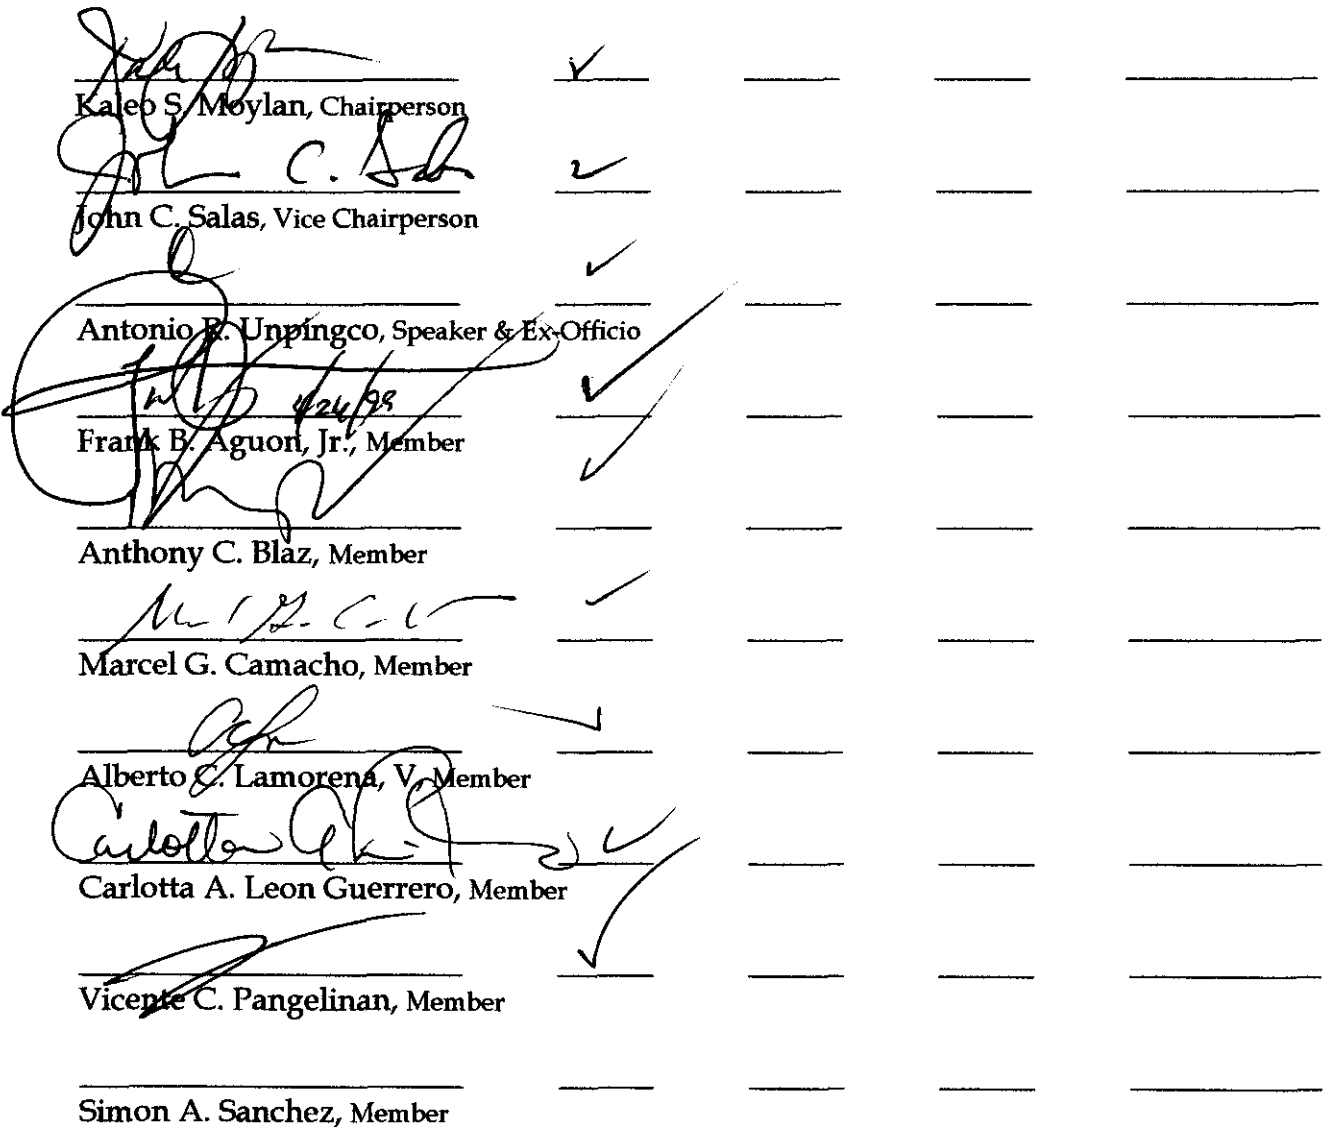 Kaleo S. Moylan, Chairperson
John C. Salas
John C. Salas, Vice Chairperson
Antonio R. Unpingco, Speaker & Ex-Officio
Frank B. Aguon, Jr., Member
Anthony C. Blaz, Member
Marcel G. Camacho, Member
Alberto C. Lamorena, V, Member
Carlotta
Carlotta A. Leon Guerrero, Member
Vicente C. Pangelinan, Member
Simon A. Sanchez, Member